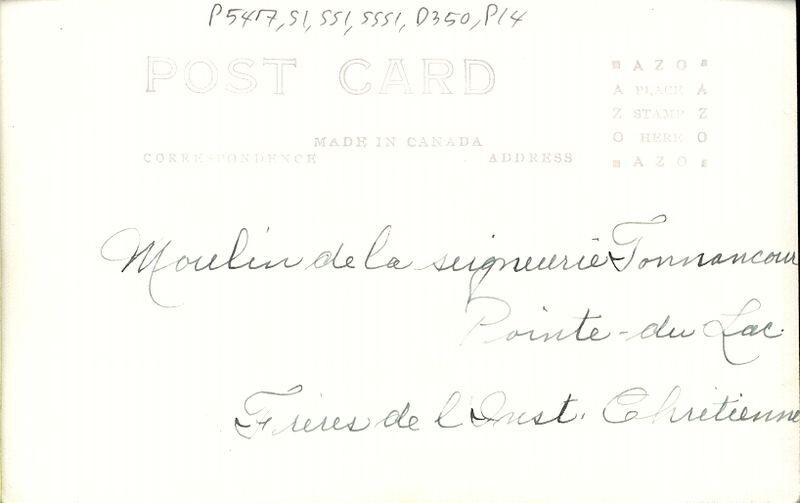 P547,S1,SS1,SSS1,D350,P14
POST CARD
AZO
A PLACE A
Z STAMP Z
O HERE O
AZO
MADE IN CANADA
CORRESPONDENCE ADDRESS
Moulin de la seigneurie Tonnancour
Pointe-du Lac.
Frères de l'Inst. Chrétienne